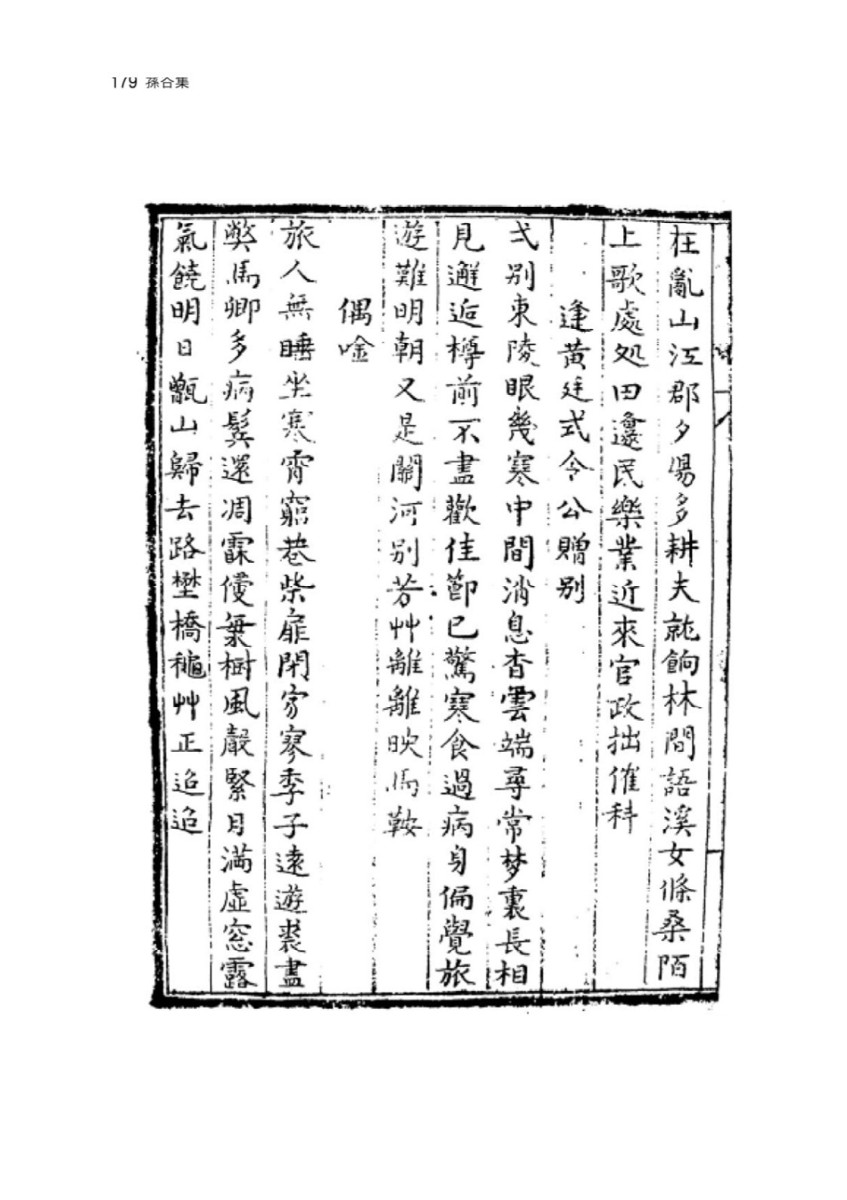 179 孫合集
在亂山江郡夕陽多耕夫就餉林間語溪女條桑陌
上歌處処田邊民樂業近來官政拙催科
逢黃廷式令公贈別
弍別東陵眼幾寒中間消息杳雲端尋常梦裏長相
見邂逅樽前不盡歡佳節已驚寒食過病身偏覺旅
遊難明朝又是關河別芳艸離離映馬鞍
偶唫
旅人無睡坐寒霄窮巷柴扉閉寥季子遠遊裘盡
弊馬卿多病鬂還凋霖僾葉樹風聲緊月滿虛窓露
氣饒明日甑山歸去路埜橋穐艸正迢迢